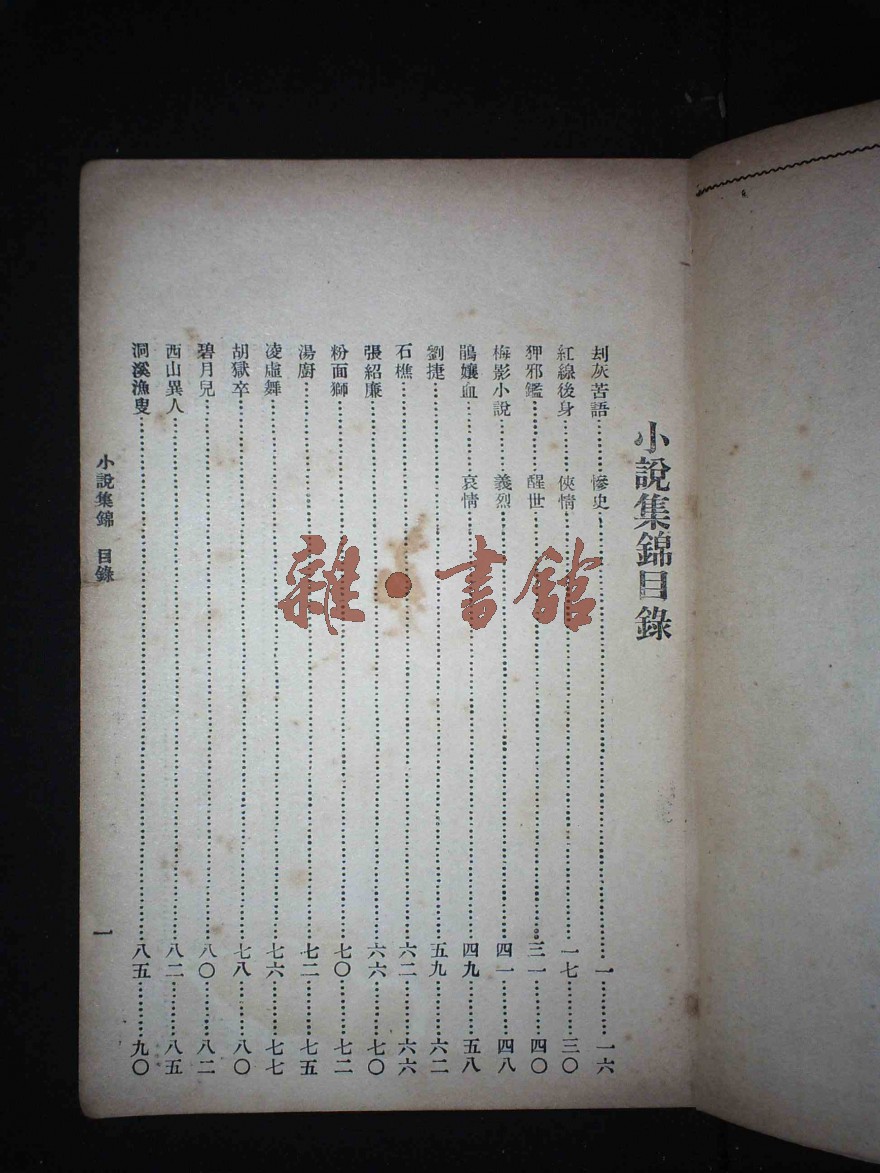 小說集錦目錄
刦灰苦語……慘史……一……一六
紅線後身……俠情……一七……三〇
狎邪鑑……醒世……三一……四〇
梅影小說……義烈……四一……四八
鵑孃血……哀情……四九……五八
劉捷……五九……六二
石樵……六二……六六
張紹廉……六六……七〇
粉面獅……七〇……七二
湯廚……七二……七五
凌虛舞……七六……七七
胡獄卒……七八……八〇
碧月兒……八〇……八二
西山異人……八二……八五
洞溪漁叟……八五……九〇
小說集錦 目錄
一
雜·書館